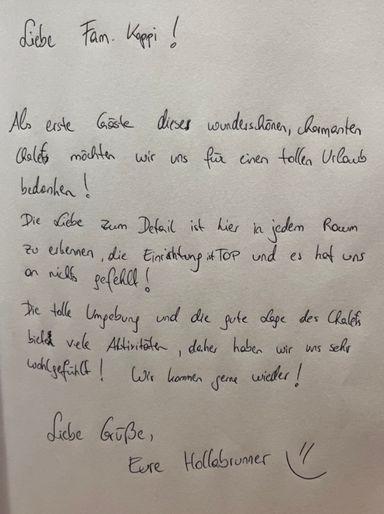 Liebe Fam. Kappi!
Als erste Gäste dieses wunderschönen, charmanten
Chalets möchten wir uns für einen tollen Urlaub
bedanken!
Die Liebe zum Detail ist hier in jedem Raum
zu erkennen, die Einrichtung ist TOP und es hat uns
an nichts gefehlt!
Die tolle Umgebung und die gute Lage des Chalets
bietet viele Aktivitäten, daher haben wir uns sehr
wohlgefühlt! Wir kommen gerne wieder!
Liebe Grüße,
Eure Hollabrunner